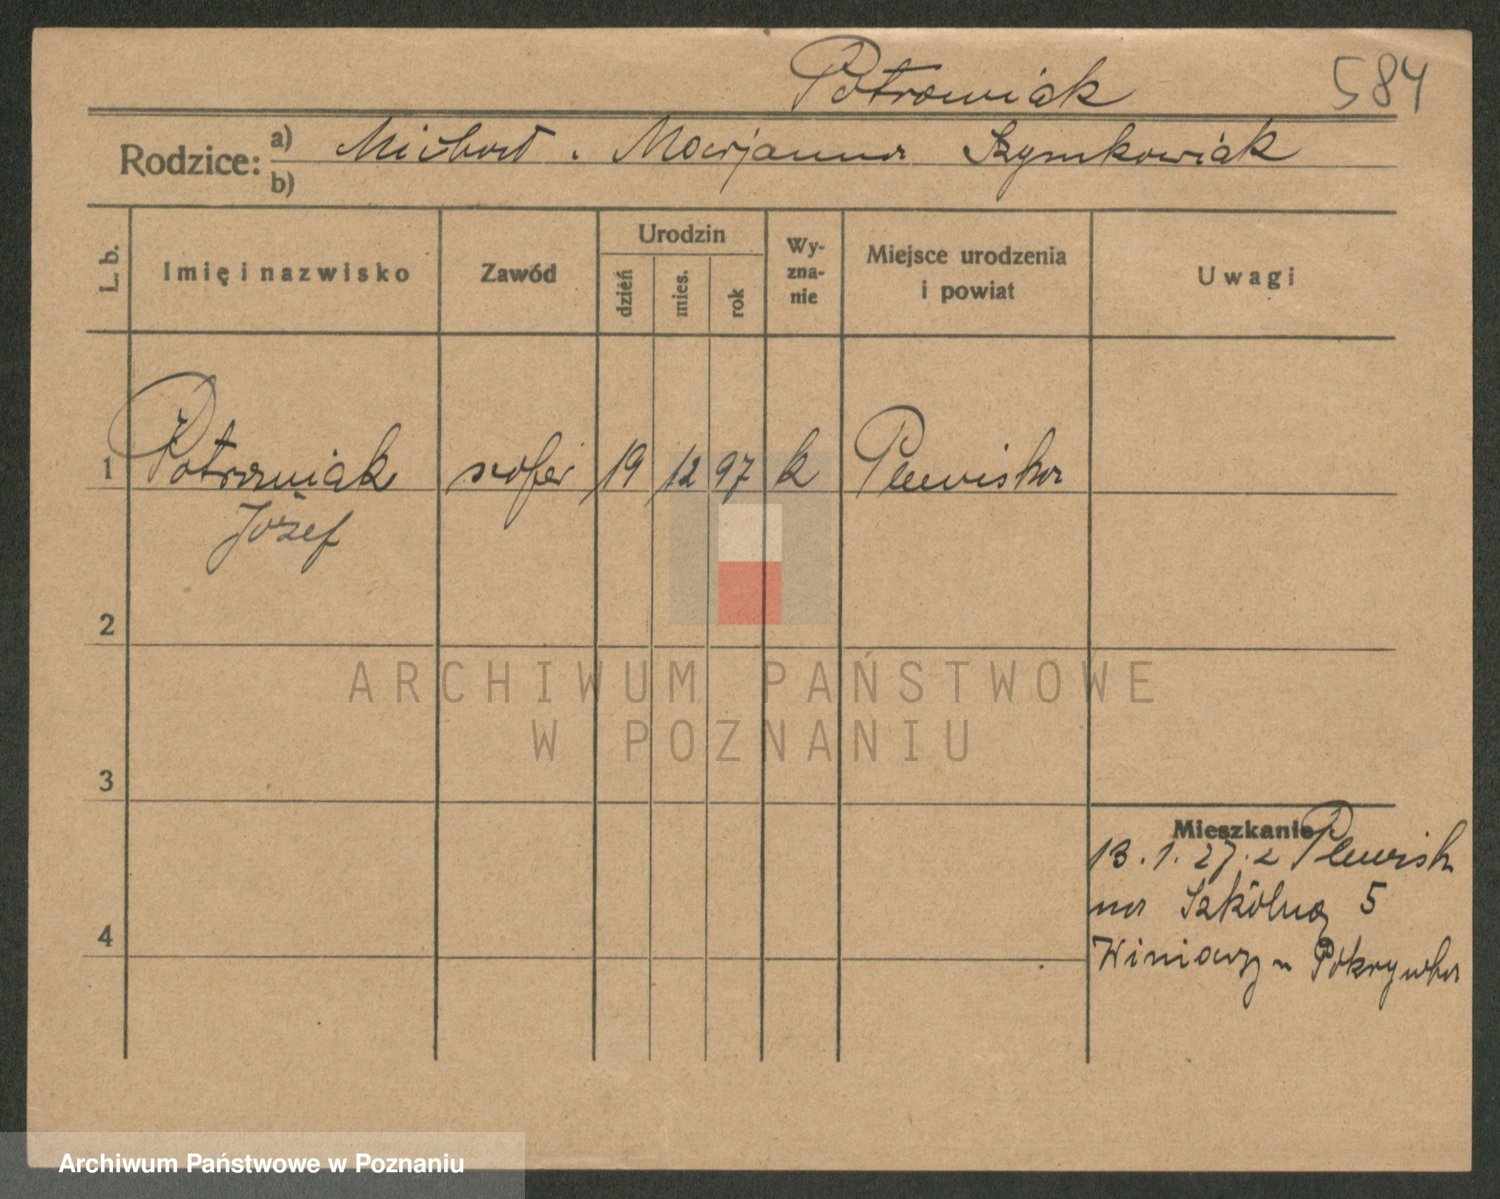 Potrawiak 584
Rodzice: a) Michał . Marjanna Szymkowiak
b)
L. b. Imię i nazwisko Zawód Urodzin dzień mies. rok Wy-zna-nie Miejsce urodzenia i powiat Uwagi
1 Potrawiak szofer 19 12 97 k Plewiska
Józef
2
3
4
Mieszkanie
13.1.27. z Plewisk
na Szkólną 5
Winiary u Pokrywka
ARCHIWUM PAŃSTWOWE
W POZNANIU
Archiwum Państwowe w Poznaniu